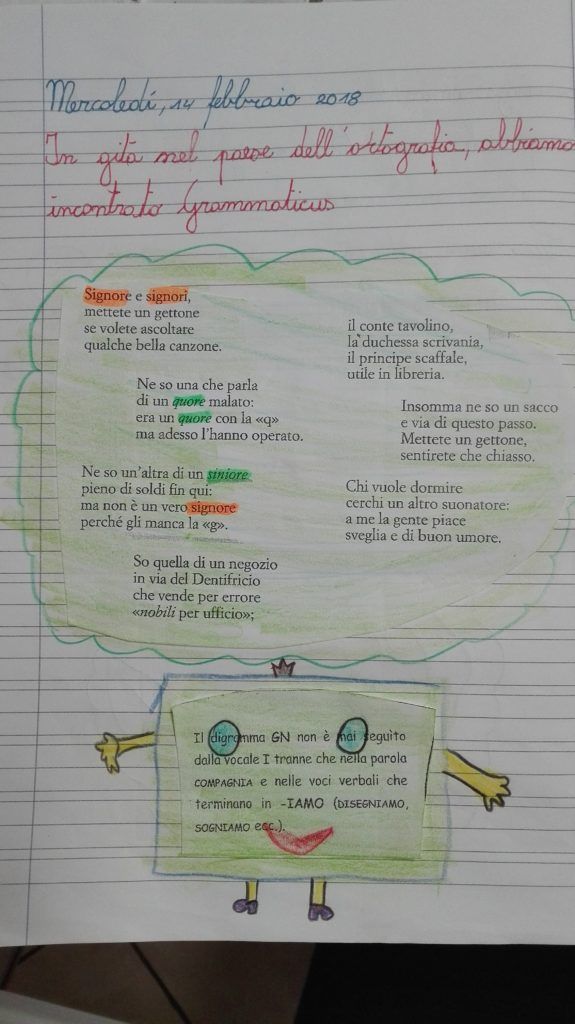 Mercoledí, 14 febbraio 2018
In gita nel paese dell'ortografia, abbiamo
incontrato Grammaticus
Signore e signori,
mettete un gettone
se volete ascoltare
qualche bella canzone.
Ne so una che parla
di un quore malato:
era un quore con la «q»
ma adesso l'hanno operato.
Ne so un'altra di un siniore
pieno di soldi fin qui:
ma non è un vero signore
perché gli manca la «g».
So quella di un negozio
in via del Dentifricio
che vende per errore
«nobili per ufficio»;
il conte tavolino,
la duchessa scrivania,
il principe scaffale,
utile in libreria.
Insomma ne so un sacco
e via di questo passo.
Mettete un gettone,
sentirete che chiasso.
Chi vuole dormire
cerchi un altro suonatore:
a me la gente piace
sveglia e di buon umore.
Il digramma GN non è mai seguito
dalla vocale I tranne che nella parola
COMPAGNIA e nelle voci verbali che
terminano in -IAMO (DISEGNIAMO,
SOGNIAMO ecc.).